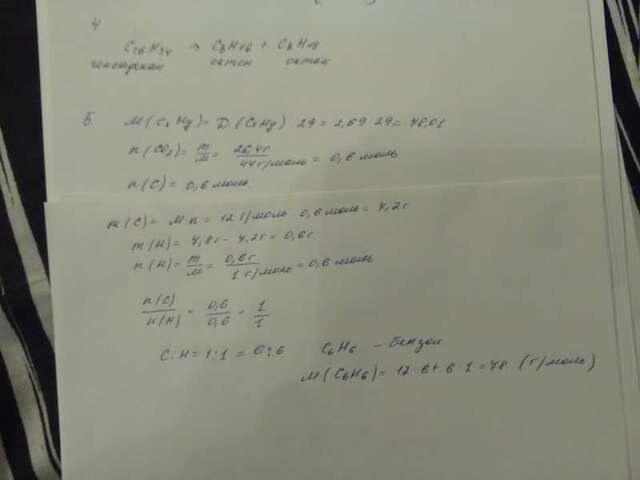 4
C16H34 → C8H16 + C8H18
гексадекан октен октан
5 M(CxHy) = D(CxHy) 29 = 2,69 29 = 48,01
n(CO2) = m/M = 26,4г/44г/моль = 0,6 моль
n(C) = 0,6 моль
m(C) = M n = 12 г/моль 0,6 моль = 4,2г
m(H) = 4,8г - 4,2г = 0,6г
n(H) = m/M = 0,6г/1 г/моль = 0,6 моль
n(C)/n(H) = 0,6/0,6 = 1/1
C:H = 1:1 = 6:6 C6H6 - бензол
M(C6H6) = 12 6 + 6 1 = 48 (г/моль)